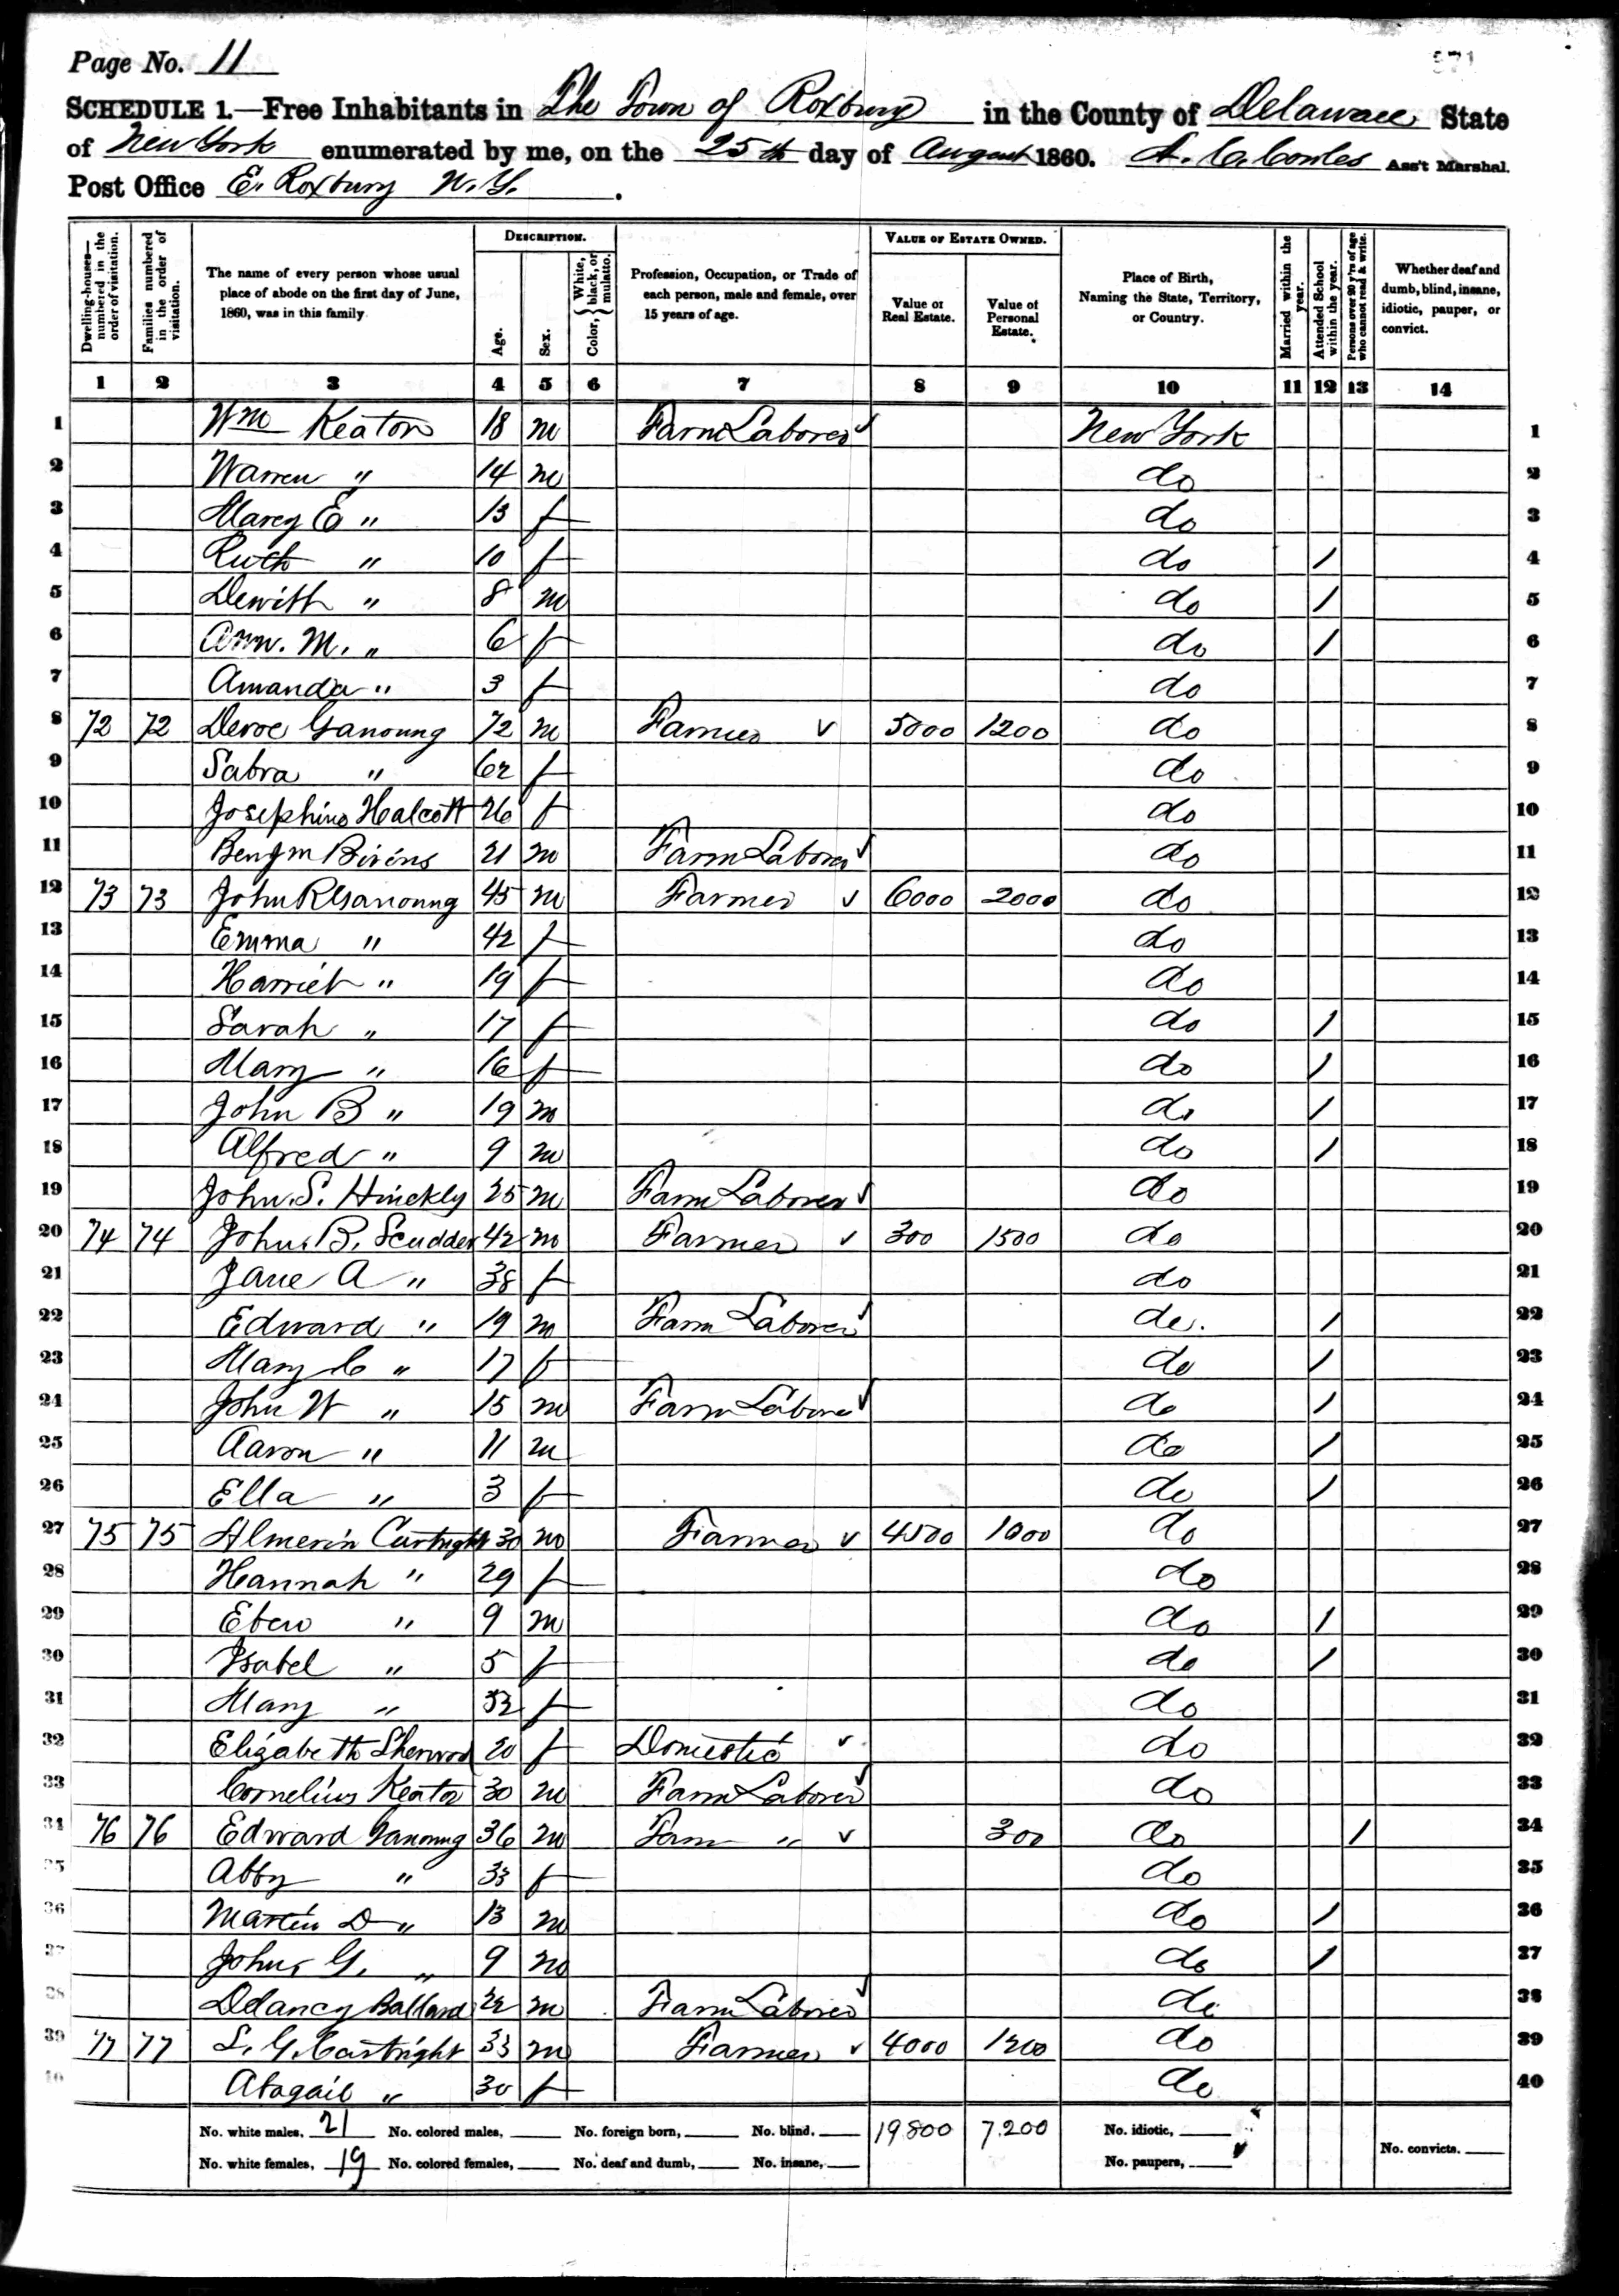 Page No. 11
571
SCHEDULE 1.—Free Inhabitants in The Town of Roxbury in the County of Delaware State
of New York enumerated by me, on the 25th day of August 1860. A. C. Cowles Ass't Marshal.
Post Office E. Roxbury N.Y.
Dwelling-houses—numbered in the order of visitation.
Families numbered in the order of visitation.
The name of every person whose usual place of abode on the first day of June, 1860, was in this family
DESCRIPTION.
Age.
Sex.
Color, { White, black, or mulatto.
Profession, Occupation, or Trade of each person, male and female, over 15 years of age.
VALUE OF ESTATE OWNED.
Value of Real Estate.
Value of Personal Estate.
Place of Birth, Naming the State, Territory, or Country.
Married within the year.
Attended School within the year.
Persons over 20 y'rs of age who cannot read & write.
Whether deaf and dumb, blind, insane, idiotic, pauper, or convict.
1 2 3 4 5 6 7 8 9 10 11 12 13 14
1 Wm Keator 18 m Farm Laborer New York 1
2 Warren " 14 m do 2
3 Marey E " 13 f do 3
4 Ruth " 10 f do / 4
5 Dewitt " 8 m do / 5
6 Ann. M. " 6 f do / 6
7 Amanda " 3 f do 7
8 72 72 Devoe Ganoung 72 m Farmer 5000 1200 do 8
9 Sabra " 62 f do 9
10 Josephine Halcott 26 f do 10
11 Benjm Bivins 21 m Farm Laborer do 11
12 73 73 John R Ganoung 45 m Farmer 6000 2000 do 12
13 Emma " 42 f do 13
14 Harriet " 19 f do 14
15 Sarah " 17 f do / 15
16 Mary " 16 f do / 16
17 John B " 19 m do / 17
18 Alfred " 9 m do / 18
19 John. S. Hinckly 25 m Farm Laborer do 19
20 74 74 John. B. Scudder 42 m Farmer 300 1500 do 20
21 Jane A " 38 f do 21
22 Edward " 19 m Farm Laborer do. / 22
23 Mary C " 17 f do / 23
24 John W " 15 m Farm Laborer do / 24
25 Aaron " 11 m do / 25
26 Ella " 3 f do / 26
27 75 75 Almerin Cartright 30 m Farmer 4500 1000 do 27
28 Hannah " 29 f do 28
29 Eben " 9 m do / 29
30 Isabel " 5 f do / 30
31 Mary " 32 f do 31
32 Elizabeth Sherwood 20 f Domestic do 32
33 Cornelius Keator 30 m Farm Laborer do 33
34 76 76 Edward Ganoung 36 m Farm " 300 do / 34
35 Abby " 33 f do 35
36 Martin D " 13 m do / 36
37 John. G. " 9 m do / 37
38 Delancy Ballard 22 m Farm Laborer do 38
39 77 77 L. G. Cartright 33 m Farmer 4000 1200 do 39
40 Abagail " 30 f do 40
No. white males, 21 No. colored males, No. foreign born, No. blind, 19800 7.200 No. idiotic,
No. white females, 19 No. colored females, No. deaf and dumb, No. insane, No. paupers, No. convicts.